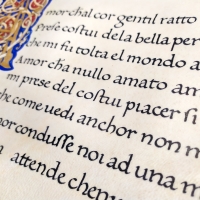 mor chal cor gentil ratto
Prese costui dela bella per
che mi fu tolta el mondo a
Amor cha nullo amato am
mi prese del costui piacer si
che come uedi anchor non m
mor condusse noi ad una m
attende chenu